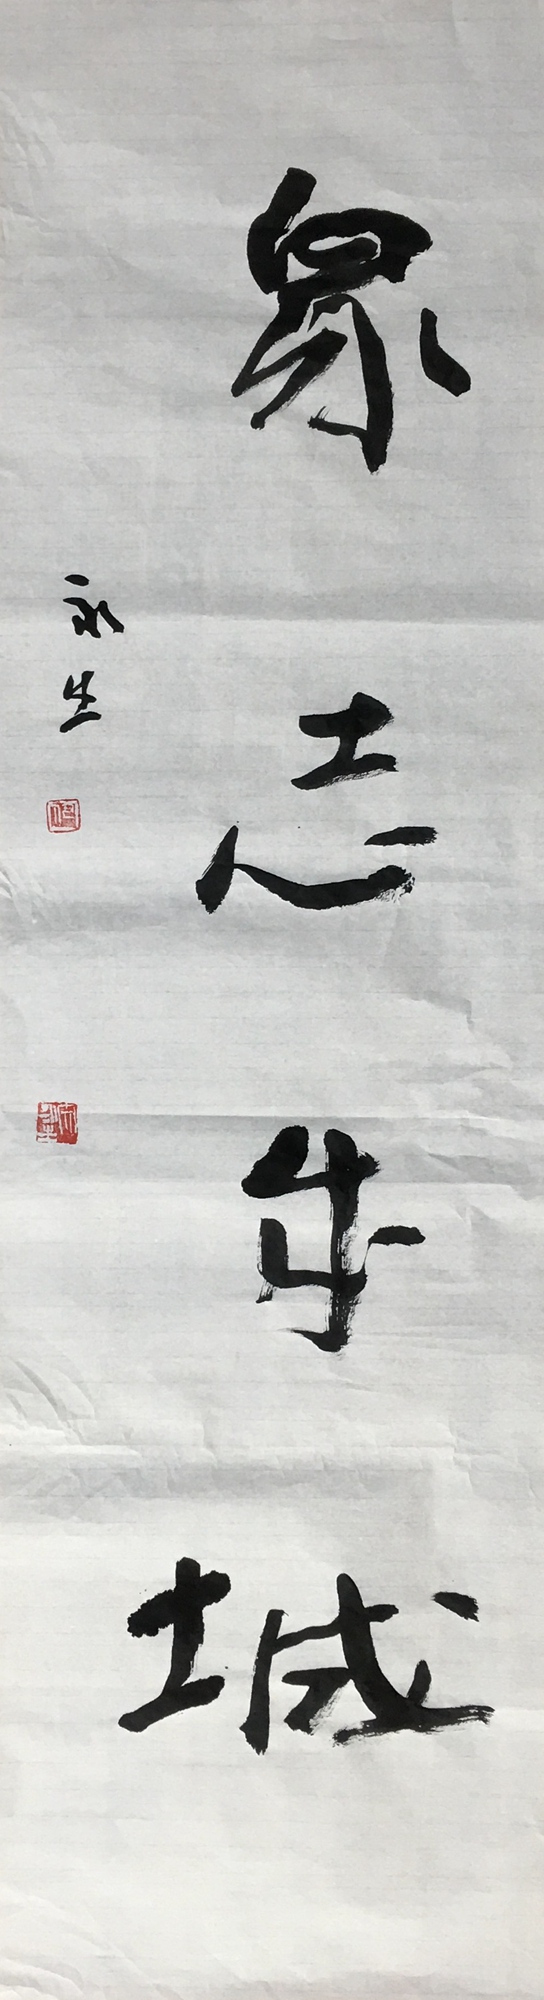 眾志成城
永生